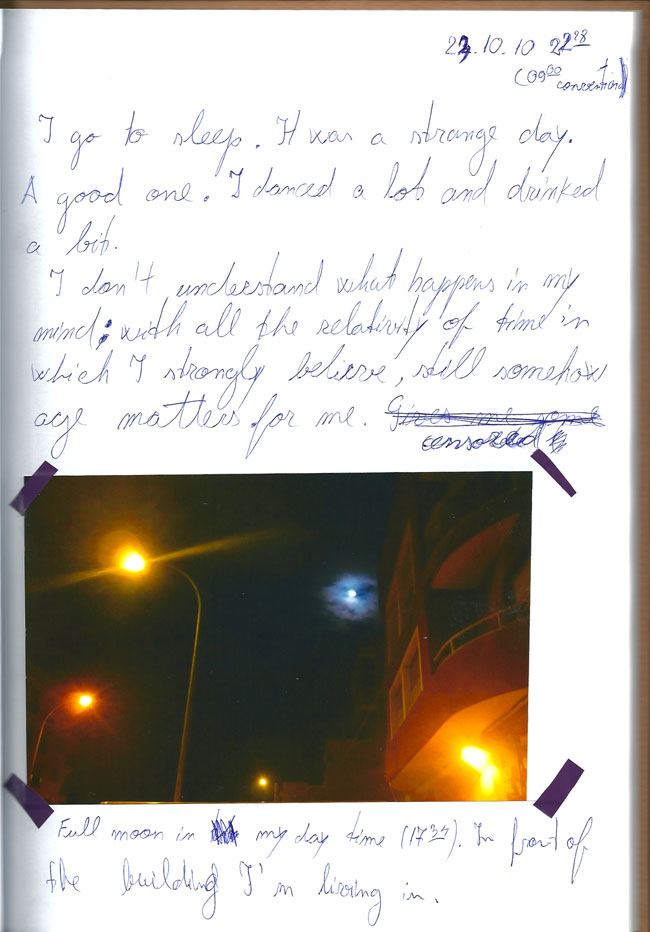 23.10.10 22²⁸
(09⁰⁰ conventional)
I go to sleep. It was a strange day.
A good one. I danced a lot and drinked
a bit.
I don't understand what happens in my
mind; with all the relativity of time in
which I strongly believe, still somehow
age matters for me. Gives me some
censored
Full moon in my day time (17³⁴). In front of
the building I'm living in.